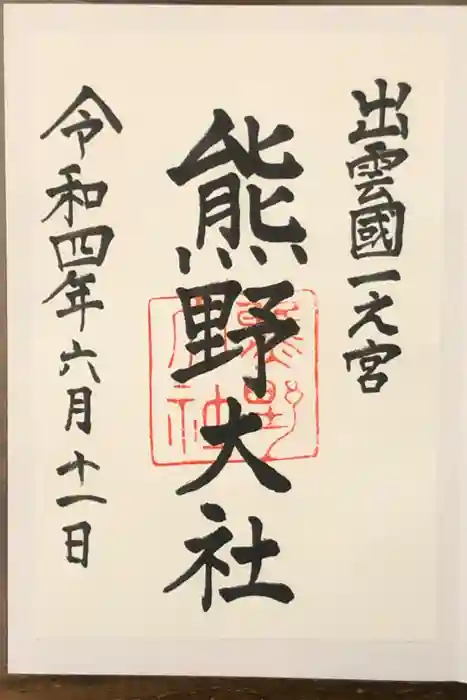 出雲國一之宮
熊野大社
令和四年六月十一日
熊野大社